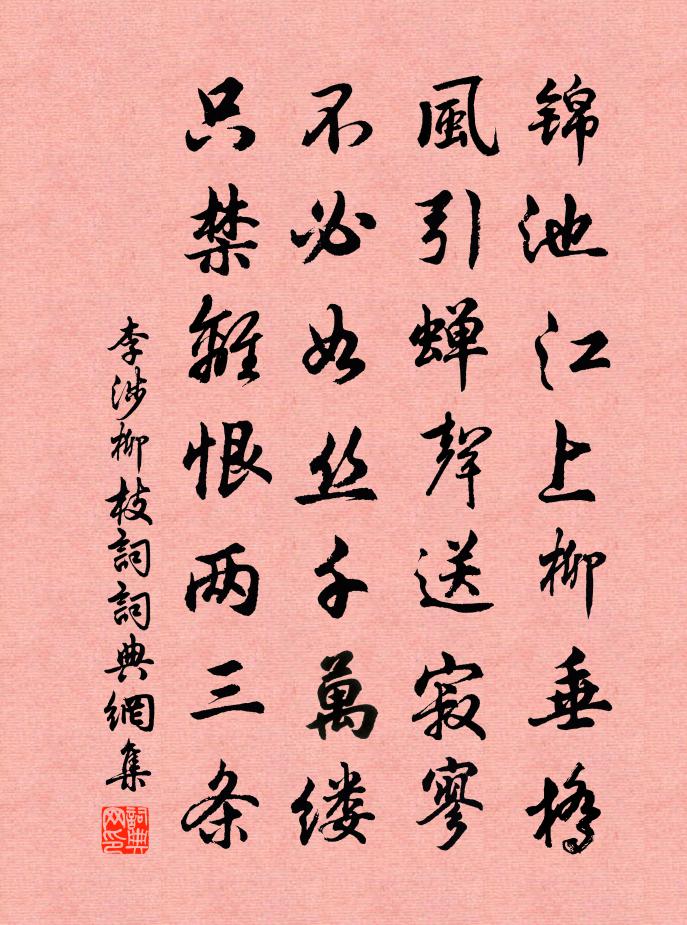 锦池江上柳垂桥
風引蝉聲送寂寥
不必如丝千萬缕
只禁離恨两三条
李涉柳枝詞詞典網集
詞典网印